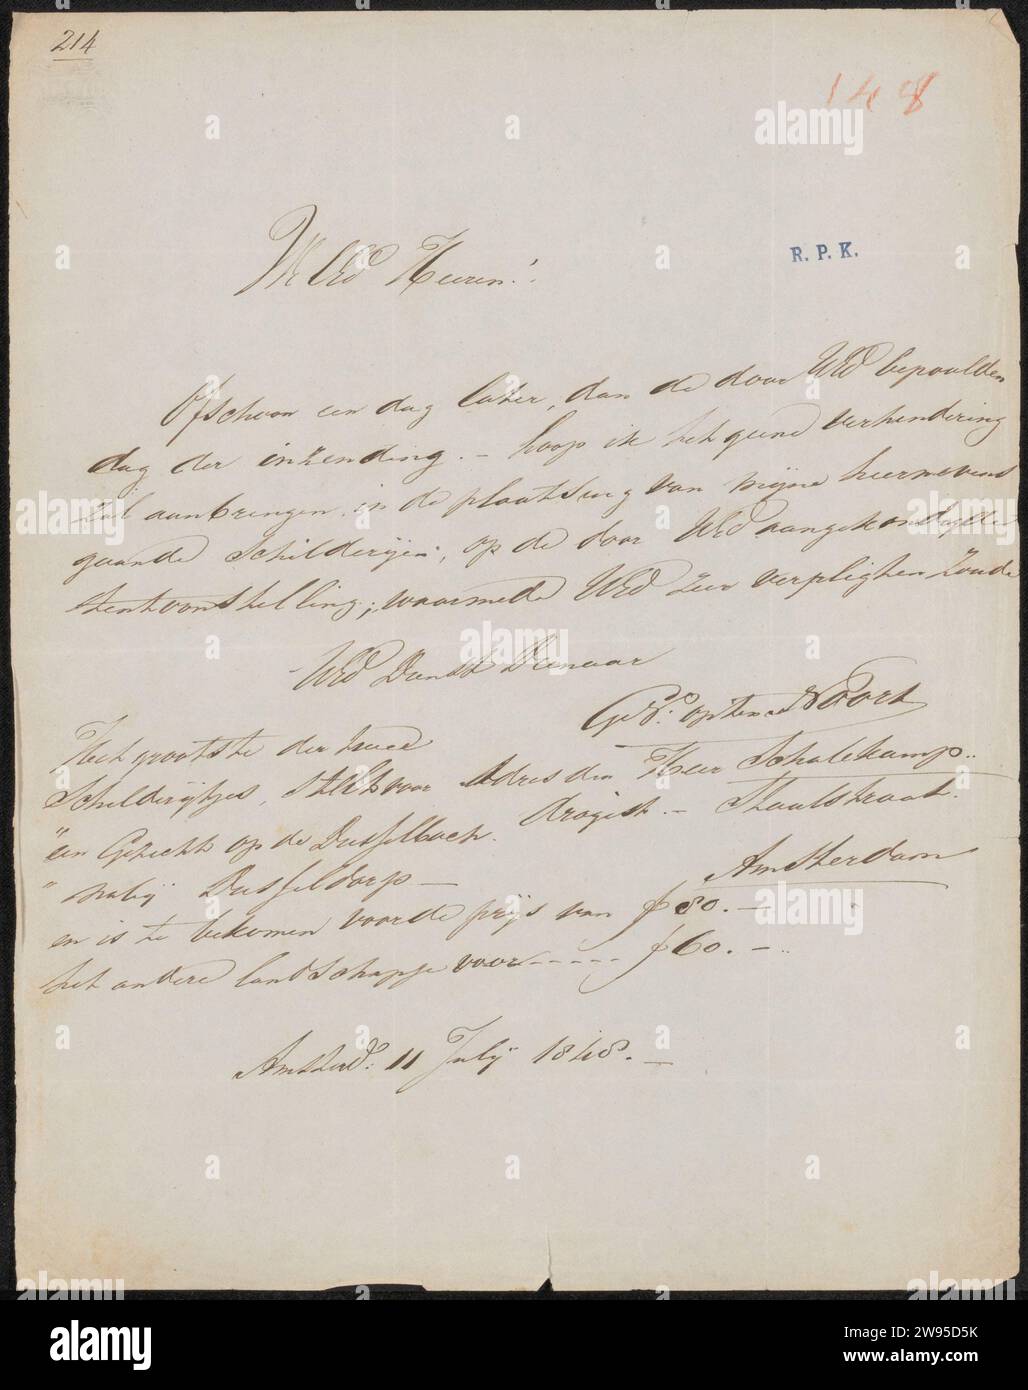 214
148
R. P. K.
WelEd Heeren!
Ofschoon een dag later, dan de door UEd bepaalden
dag der inzending. – hoop ik het geene verhindering
zal aanbrengen in de plaatsing van mijne hiernevens
gaande schilderijen, op de door UEd aangekondigde
tentoonstelling; waarmede UEd zeer verpligten zoude
UEd Dienstv Dienaar
Het grootste der twee
Schilderijtjes, stelt voor Adres den Heer Schalekamp.
een Gezicht op de Dusselbach. drogist. – Staalstraat.
" nabij Dusseldorp – Amsterdam
en is te bekomen voor de prijs van ƒ 80. –
het andere landschapje voor ----- ƒ 60. –
Amsterd: 11 Julij 1848. –
alamy
Image ID: 2W95D5K
www.alamy.com